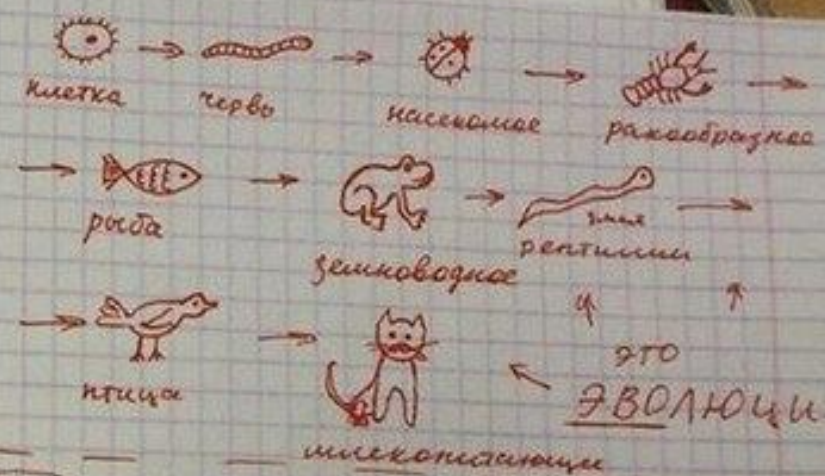 клетка червь насекомое ракообразное
рыба земноводное змея рептилии
птица млекопитающи
это
ЭВОЛЮЦИ